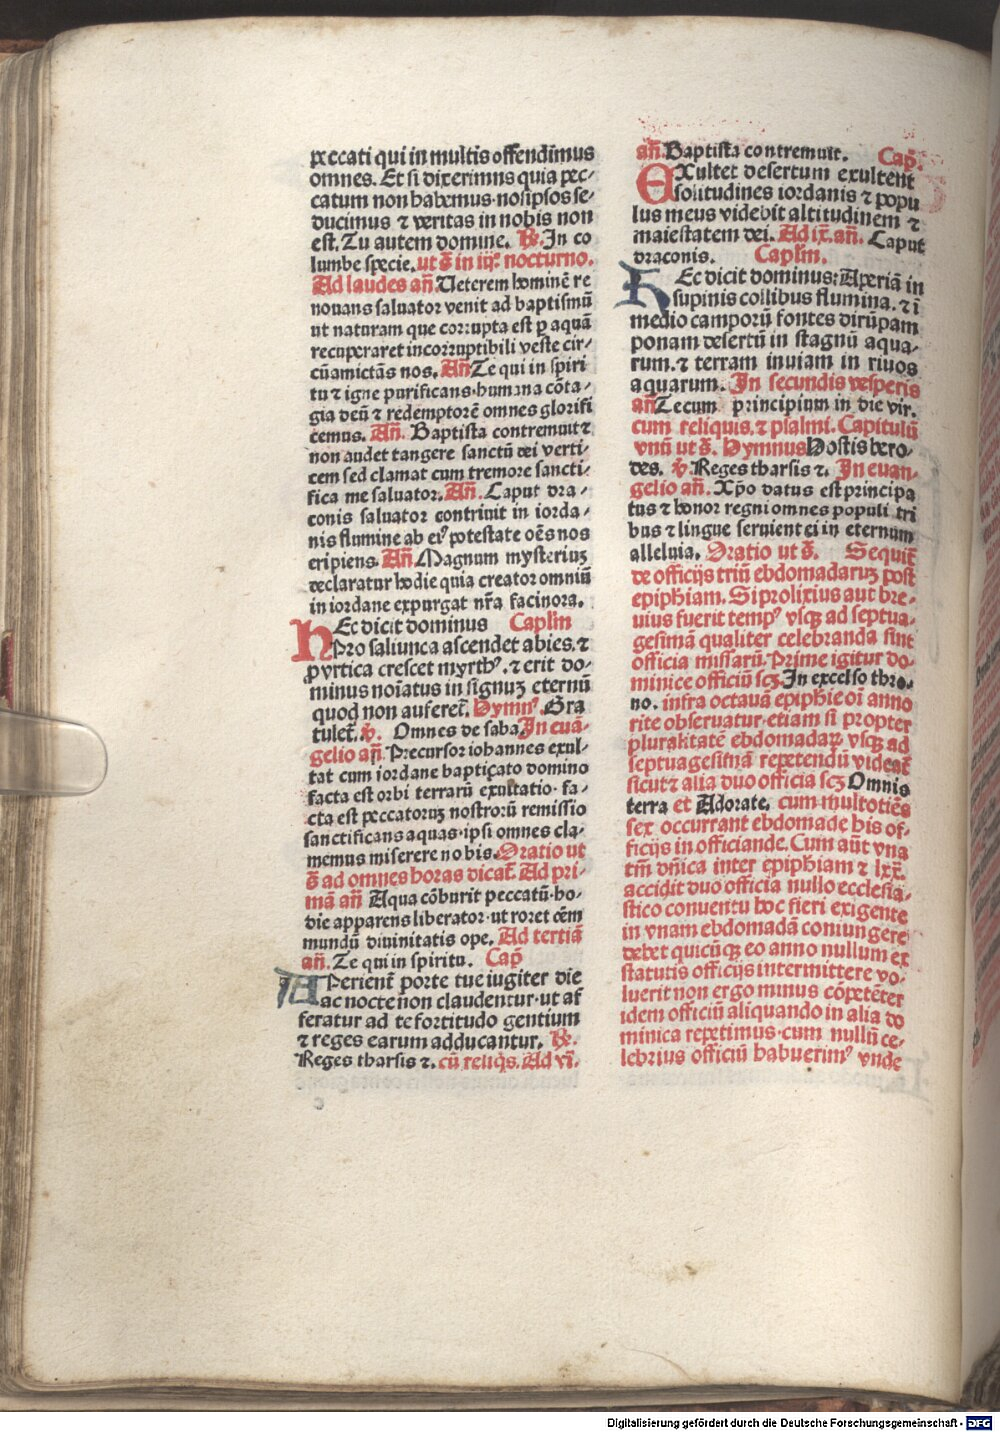 peccati qui in multis offendimus
omnes. Et si dixerimns quia pec-
catum non habemus nosipsos se-
ducimus ⁊ veritas in nobis non
est. Tu autem domine. R̃. In co
lumbe specie. ut s̄ in iijº nocturno.
Ad laudes an̄. Ueterem hominē re
nouans saluator venit ad baptismū
ut naturam que corrupta est p aquā
recuperaret incorruptibili veste cir-
cūamictās nos. An̄ Te qui in spiri
tu ⁊ igne purificans humana cōta-
gia deū ⁊ redemptorē omnes glorifi
cemus. An̄. Baptista contremuit ⁊
non audet tangere sanctū dei verti
cem sed clamat cum tremore sancti-
fica me saluator. An̄. Caput dra-
conis saluator contriuit in iorda-
nis flumine ab ei⁹ potestate oēs nos
eripiens. An̄ Magnum mysteriuꝫ
declaratur hodie quia creator omniū
in iordane expurgat nr̄a facinora.
HEc dicit dominus Caplm̄
Pro saliunca ascendet abies. ⁊
p vrtica crescet myrth⁹. ⁊ erit do-
minus noīatus in signuꝫ eternū
quod non auferet̄. Hymn⁹. Gra
tulet̄. v̄. Omnes de saba. In euā-
gelio an̄. Precursor iohannes exul-
tat cum iordane baptiçato domino
facta est orbi terrarū exultatio. fa-
cta est peccatoruꝫ nostrorū remissio
sanctificans aquas. ipsi omnes cla-
memus miserere nobis. Oratio ut
s̄ ad omnes horas dicat̄. Ad pri-
mā an̄ Aqua cōburit peccatū ho-
die apparens liberator. ut roret oēm
mundū diuinitatis ope. Ad tertiā
an̄. Te qui in spiritu. Cap̄
APerient̄ porte tue iugiter die
ac nocte non claudentur. ut af
feratur ad te fortitudo gentium
⁊ reges earum adducantur. R̃.
Reges tharsis ⁊. cū reliq̄s. Ad vī.
an̄. Baptista contremuit. Cap̄.
EXultet desertum exultent
solitudines iordanis ⁊ popu
lus meus videbit altitudinem ⁊
maiestatem dei. Ad ix̄. an̄. Caput
draconis. Caplm̄.
HEc dicit dominus: Aperiā in
supinis collibus flumina. ⁊ ī
medio camporū fontes dirūpam
ponam desertū in stagnū aqua-
rum. ⁊ terram inuiam in riuos
aquarum. In secundis vesperis
an̄ Tecum principium in die vir.
cum reliquis. ⁊ psalmi. Capitulū
vnū ut s̄. Hymnus Hostis hero-
des. v̄. Reges tharsis ⁊. In euan-
gelio an̄. Xp̄o datus est principa
tus ⁊ honor regni omnes populi tri
bus ⁊ lingue seruient ei in eternum
alleluia. Oratio ut s̄. Sequit̄
de officijs triū ebdomadaruꝫ post
epiphiam. Si prolixius aut bre-
uius fuerit temp⁹ vsqꝫ ad septua-
gesimā qualiter celebranda sint
officia missarū. Prime igitur do-
minice officiū scꝫ. In excelso thro-
no. infra octauā epiphie oī anno
rite obseruatur etiam si propter
pluralitatē ebdomadaꝝ vsqꝫ ad
septuagesimā repetendū videat̄
sicut ⁊ alia duo officia scꝫ Omnis
terra et Adorate. cum multotiēs
sex occurrant ebdomade his of-
ficijs in officiande. Cum aūt vna
tm̄ dn̄ica inter epiphiam ⁊ lxx̄.
accidit duo officia nullo ecclesia-
stico conuentu hoc fieri exigente
in vnam ebdomadā coniungere
debet quicūqꝫ eo anno nullum ex
statutis officijs intermittere vo-
luerit non ergo minus cōpetēter
idem officiū aliquando in alia do
minica repetimus. cum nullū ce-
lebrius officiū habuerim⁹ vnde
Digitalisierung gefördert durch die Deutsche Forschungsgemeinschaft - DFG